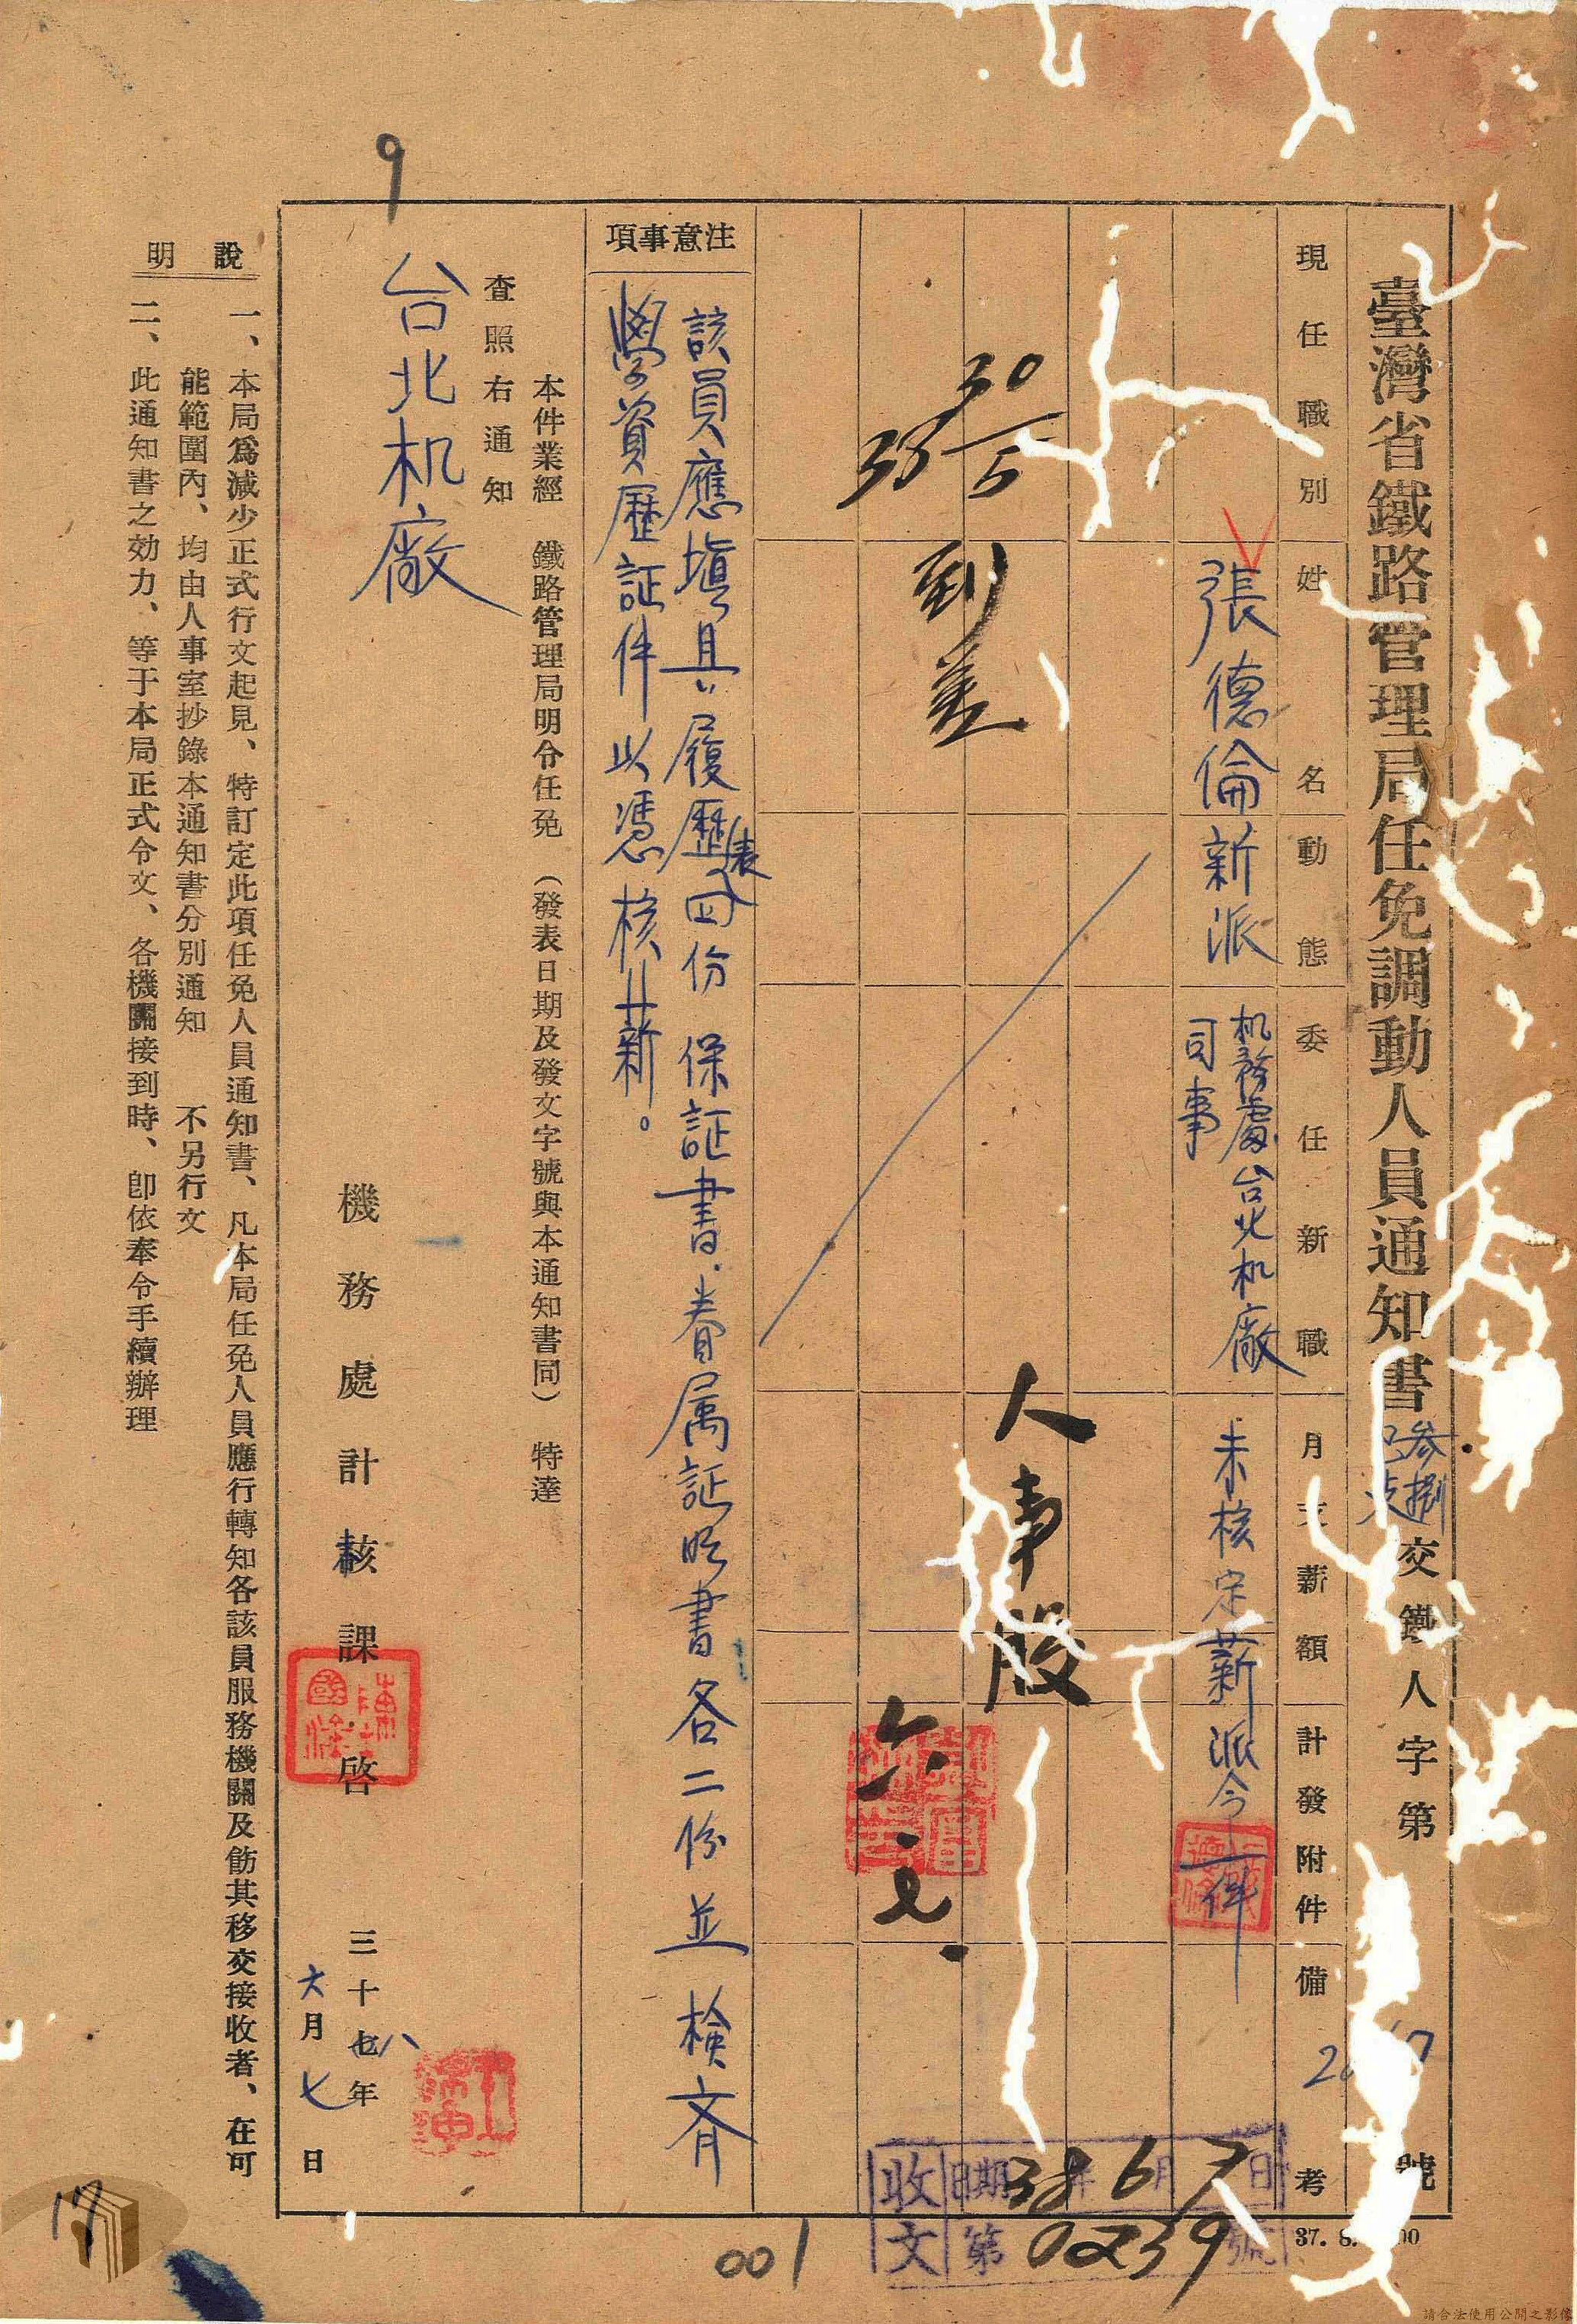 臺灣省鐵路管理局任免調動人員通知書
參捌
交鐵人字第
號
現任職別
姓名
動態
委任新職
月支薪額
計發附件
備考
張德倫
新派
机務處台北机廠
司事
未核定薪
派令一件
人事股
30/5
33
到差
六.七.
注意事項
該員應填具履歷表四份保証書.眷属証明書各二份並檢齊
學資歷証件以憑核薪。
本件業經 鐵路管理局明令任免 (發表日期及發文字號與本通知書同) 特達
查照右通知
台北机廠
機務處計核課啓
三十七八年
六月七日
說明
一、本局爲減少正式行文起見、特訂定此項任免人員通知書、凡本局任免人員應行轉知各該員服務機關及飭其移交接收者、在可
能範圍內、均由人事室抄錄本通知書分別通知 不另行文
二、此通知書之効力、等于本局正式令文、各機關接到時、卽依奉令手續辦理
收文
日期38年6月7日
第0239號
001
9
17
請合法使用公開之影像